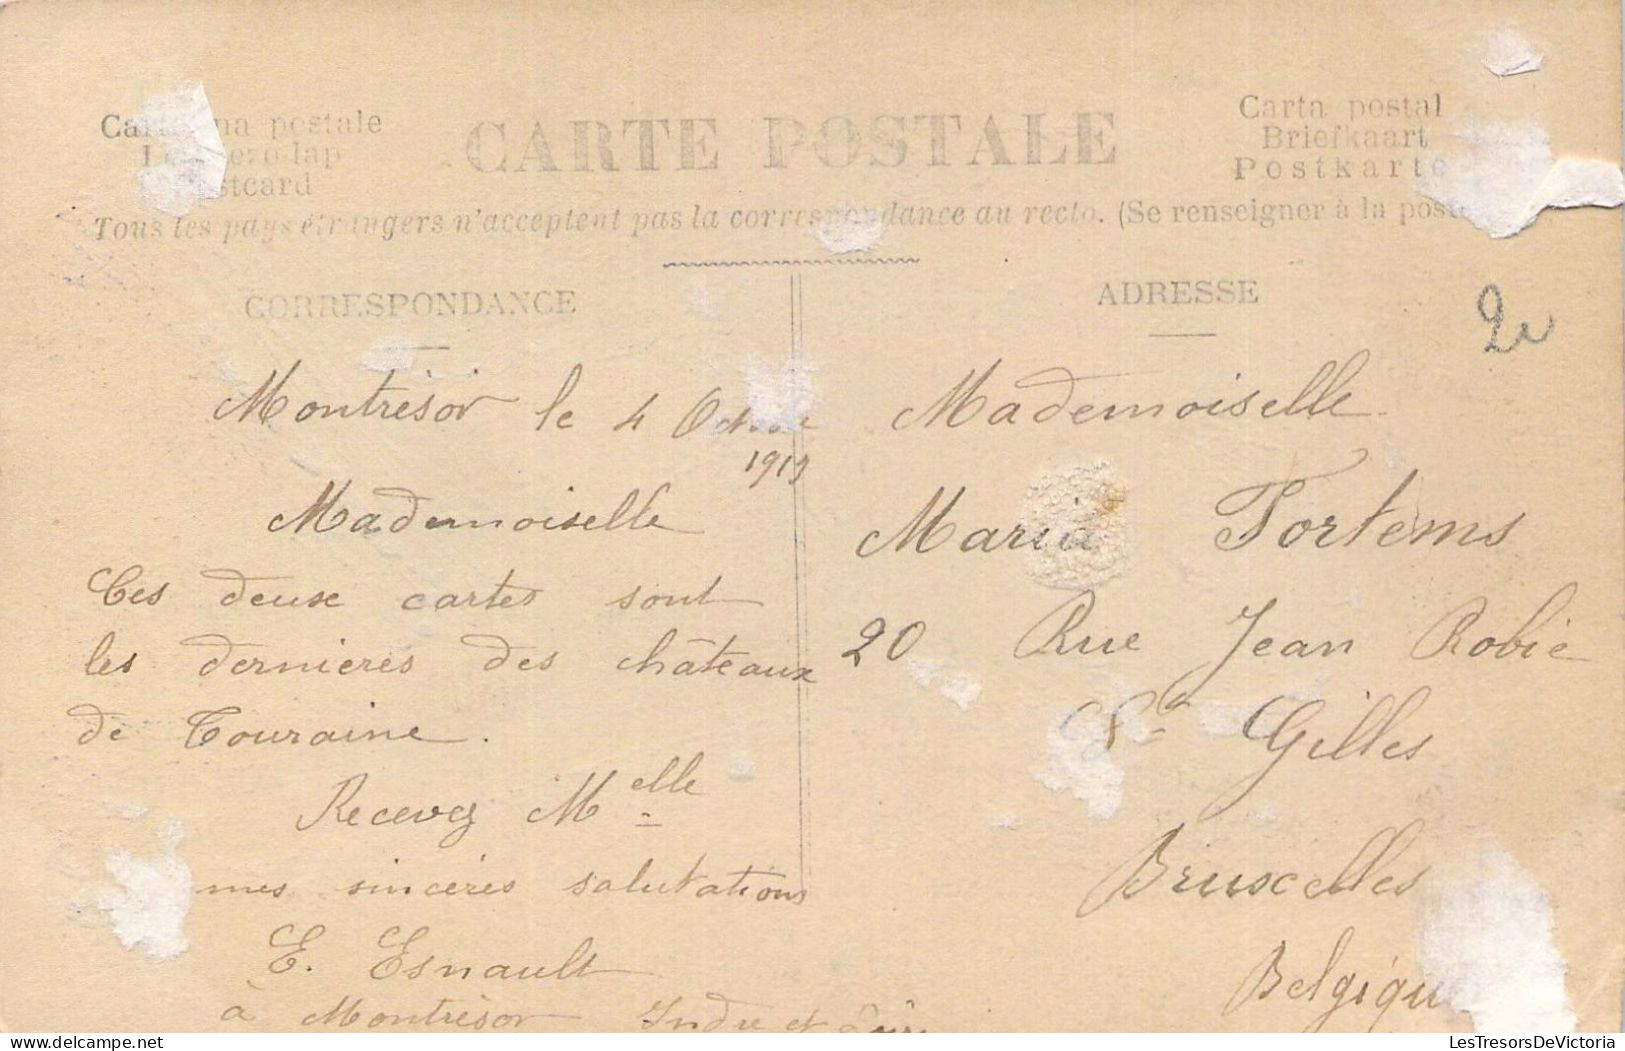 postale
CARTE POSTALE
Carta postal
Briefkaart
Postkarte
Tous les pays étrangers n'acceptent pas la correspondance au recto. (Se renseigner à la poste
CORRESPONDANCE
ADRESSE
Montrésor le 4
Mademoiselle
Ces deux cartes sont
les dernieres des châteaux
de Touraine.
Recevez Melle
mes sincères salutations
E. Esnault
à Montrésor Indre et Loire
Mademoiselle
Maria Tortems
20 Rue Jean Robie
St Gilles
Bruxelles
Belgique
www.delcampe.net
LesTresorsDeVictoria